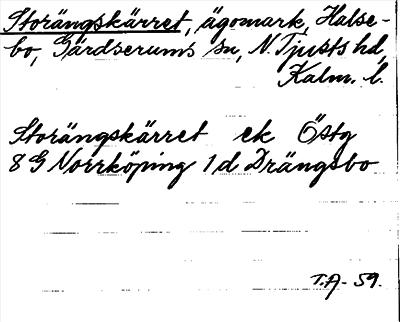 Storängskärret, ägomark, Halse-
bo, Gärdserums sn, N. Tjusts hd,
Kalm. l.
Storängskärret ek Östg
8 G Norrköping 1 d Drängsbo
T.A - 59.